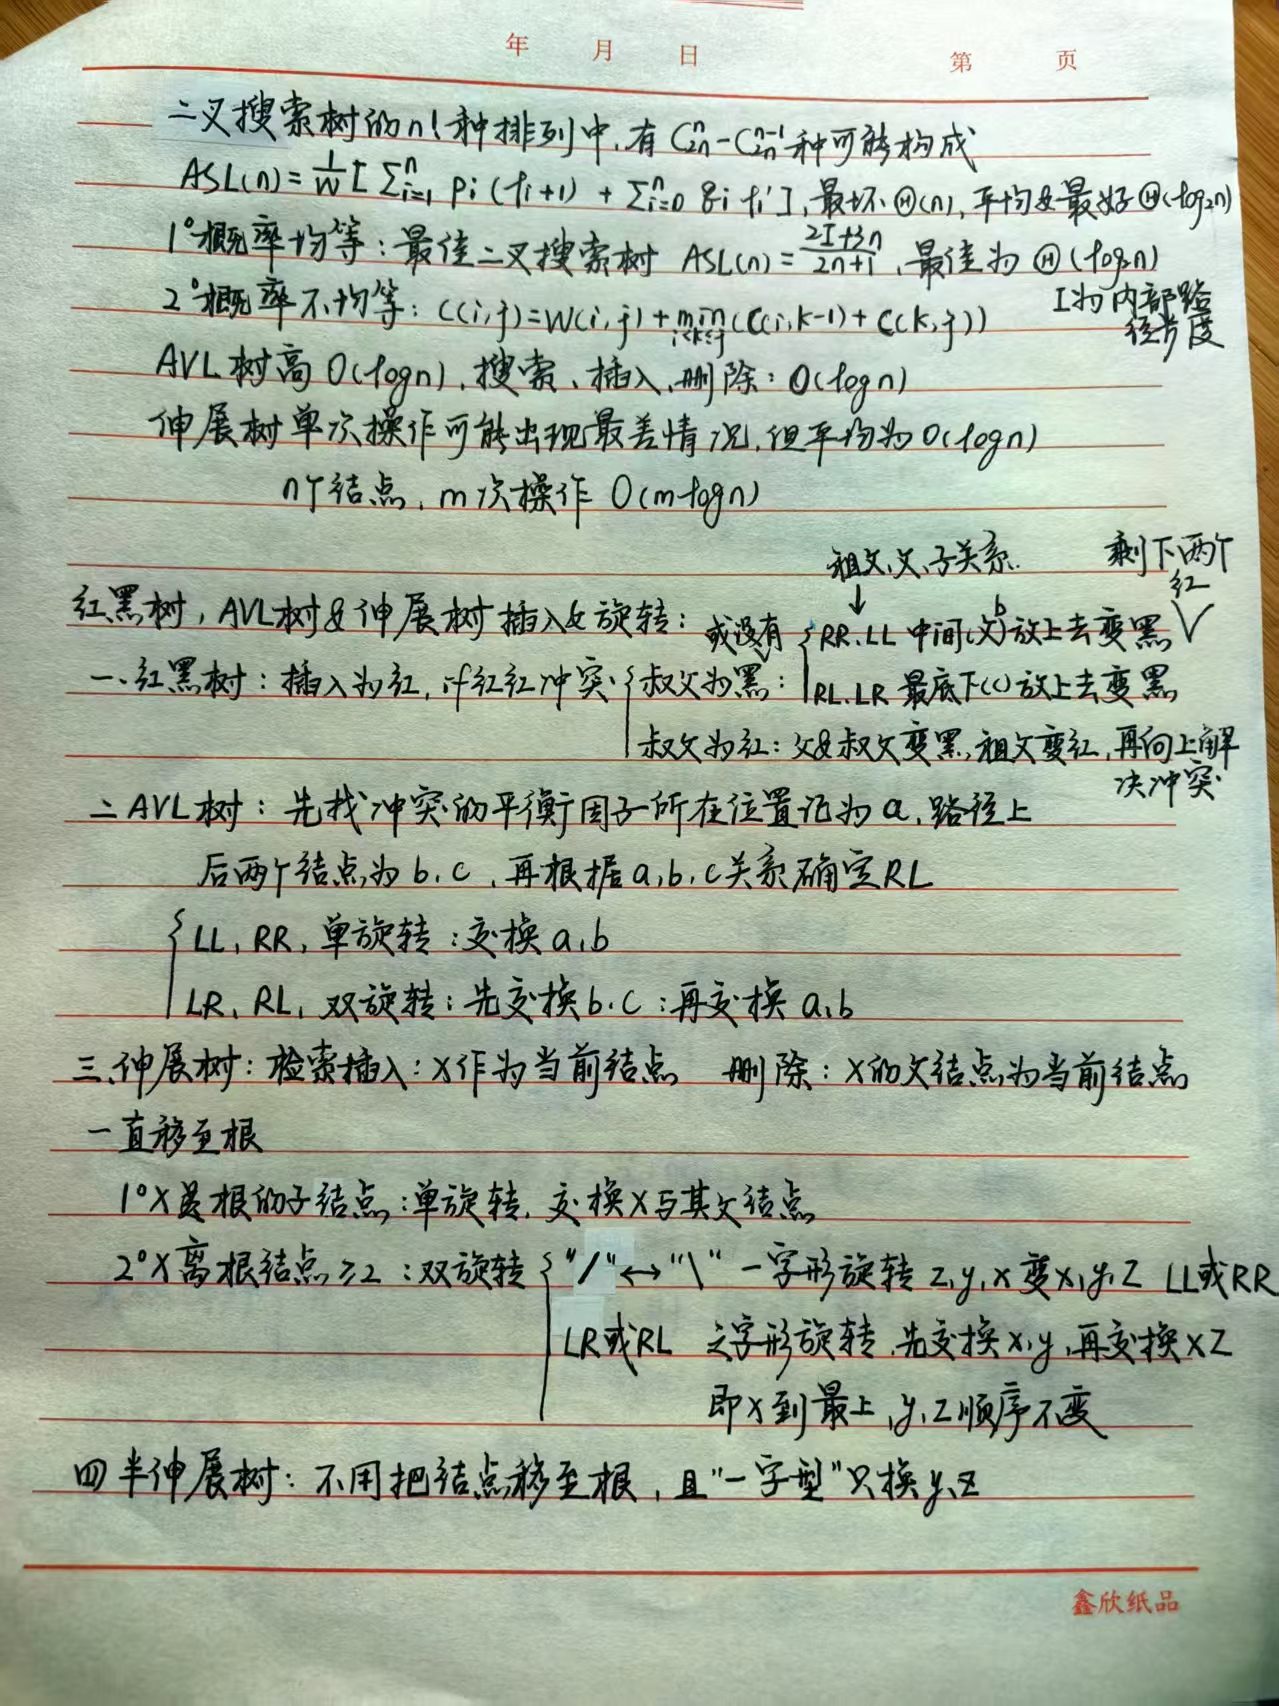 年 月 日 第 页
二叉搜索树的n!种排列中,有C₂ₙⁿ-C₂ₙⁿ⁻¹种可能构成
ASL(n)=1/W[Σⁿᵢ₌₁ pi(li+1)+Σⁿᵢ₌₀ qi li'],最坏Θ(n),平均&最好Θ(log₂n)
1°概率均等:最佳二叉搜索树 ASL(n)=(2I+3n)/(2n+1),最佳为Θ(log₂n)
I为内部路径长度
2°概率不均等:C(i,j)=W(i,j)+min i<k≤j(C(i,k-1)+C(k,j))
AVL树高O(logn),搜索、插入、删除:O(logn)
伸展树单次操作可能出现最差情况,但平均为O(logn)
n个结点,m次操作 O(mlogn)
祖父、父、子关系
剩下两个红
红黑树,AVL树&伸展树插入&旋转:
或没有
RR.LL 中间(父)b放上去变黑
一、红黑树:插入为红,if红红冲突{叔父为黑:
RL.LR 最底下(c)放上去变黑
叔父为红:父&叔父变黑,祖父变红,再向上解决冲突
二AVL树:先找冲突的平衡因子所在位置记为a,路径上
后两个结点为b.c,再根据a,b,c关系确定RL
{LL,RR,单旋转:交换a,b
LR,RL,双旋转:先交换b.c:再交换a,b
三、伸展树:检索插入:X作为当前结点 删除:X的父结点为当前结点
一直移至根
1°X是根的子结点:单旋转,交换X与其父结点
2°X离根结点≥2:双旋转{"/"↔"\" 一字形旋转 z,y,x变x,y,z LL或RR
LR或RL 之字形旋转,先交换x,y,再交换xz
即x到最上,y,z顺序不变
四半伸展树:不用把结点移至根,且"一字型"只换y、z
鑫欣纸品